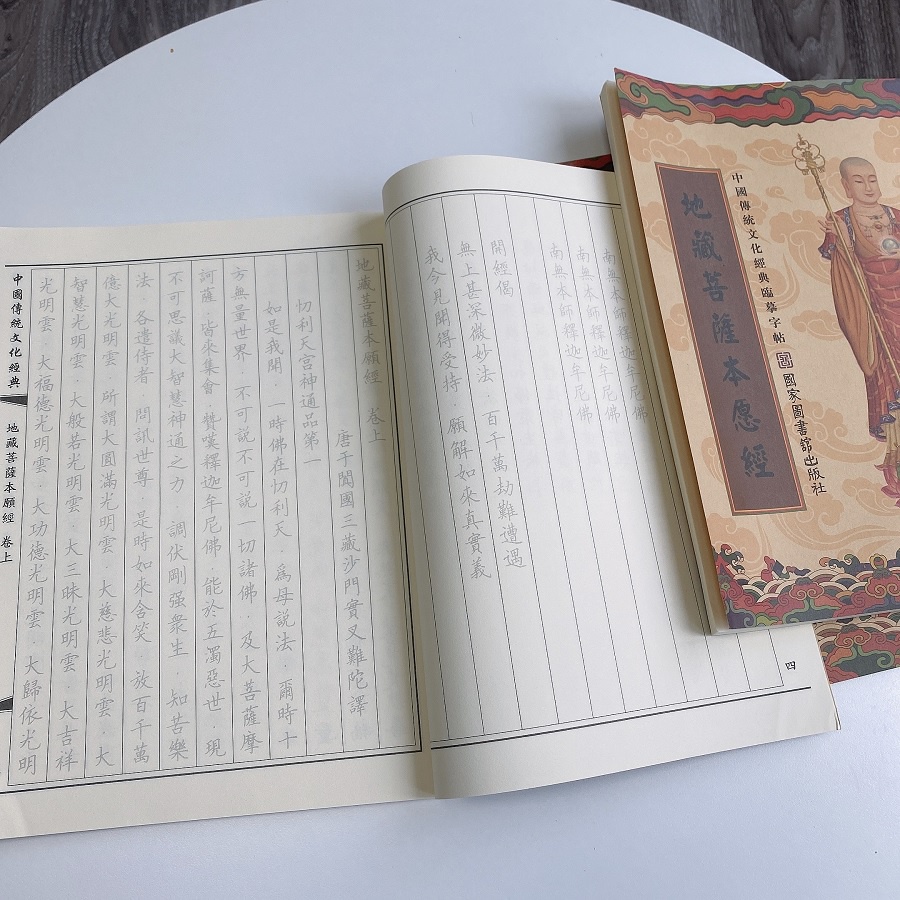 地藏菩薩本愿經
中國傳統文化經典臨摹字帖
國家圖書館出版社
南無本師釋迦牟尼佛
南無本師釋迦牟尼佛
南無本師釋迦牟尼佛
開經偈
無上甚深微妙法·百千萬劫難遭遇
我今見聞得受持·願解如來真實義
四
地藏菩薩本願經 卷上
唐于闐國三藏沙門實叉難陀譯
忉利天宮神通品第一
如是我聞·一時佛在忉利天·爲母說法·爾時十
方無量世界·不可說不可說一切諸佛·及大菩薩摩
訶薩·皆來集會·贊嘆釋迦牟尼佛·能於五濁惡世·現
不可思議大智慧神通之力·調伏剛强衆生·知苦樂
法·各遣侍者·問訊世尊·是時如來含笑·放百千萬
億大光明雲·所謂大圓滿光明雲·大慈悲光明雲·大
智慧光明雲·大般若光明雲·大三昧光明雲·大吉祥
光明雲·大福德光明雲·大功德光明雲·大歸依光明
中國傳統文化經典
地藏菩薩本願經 卷上